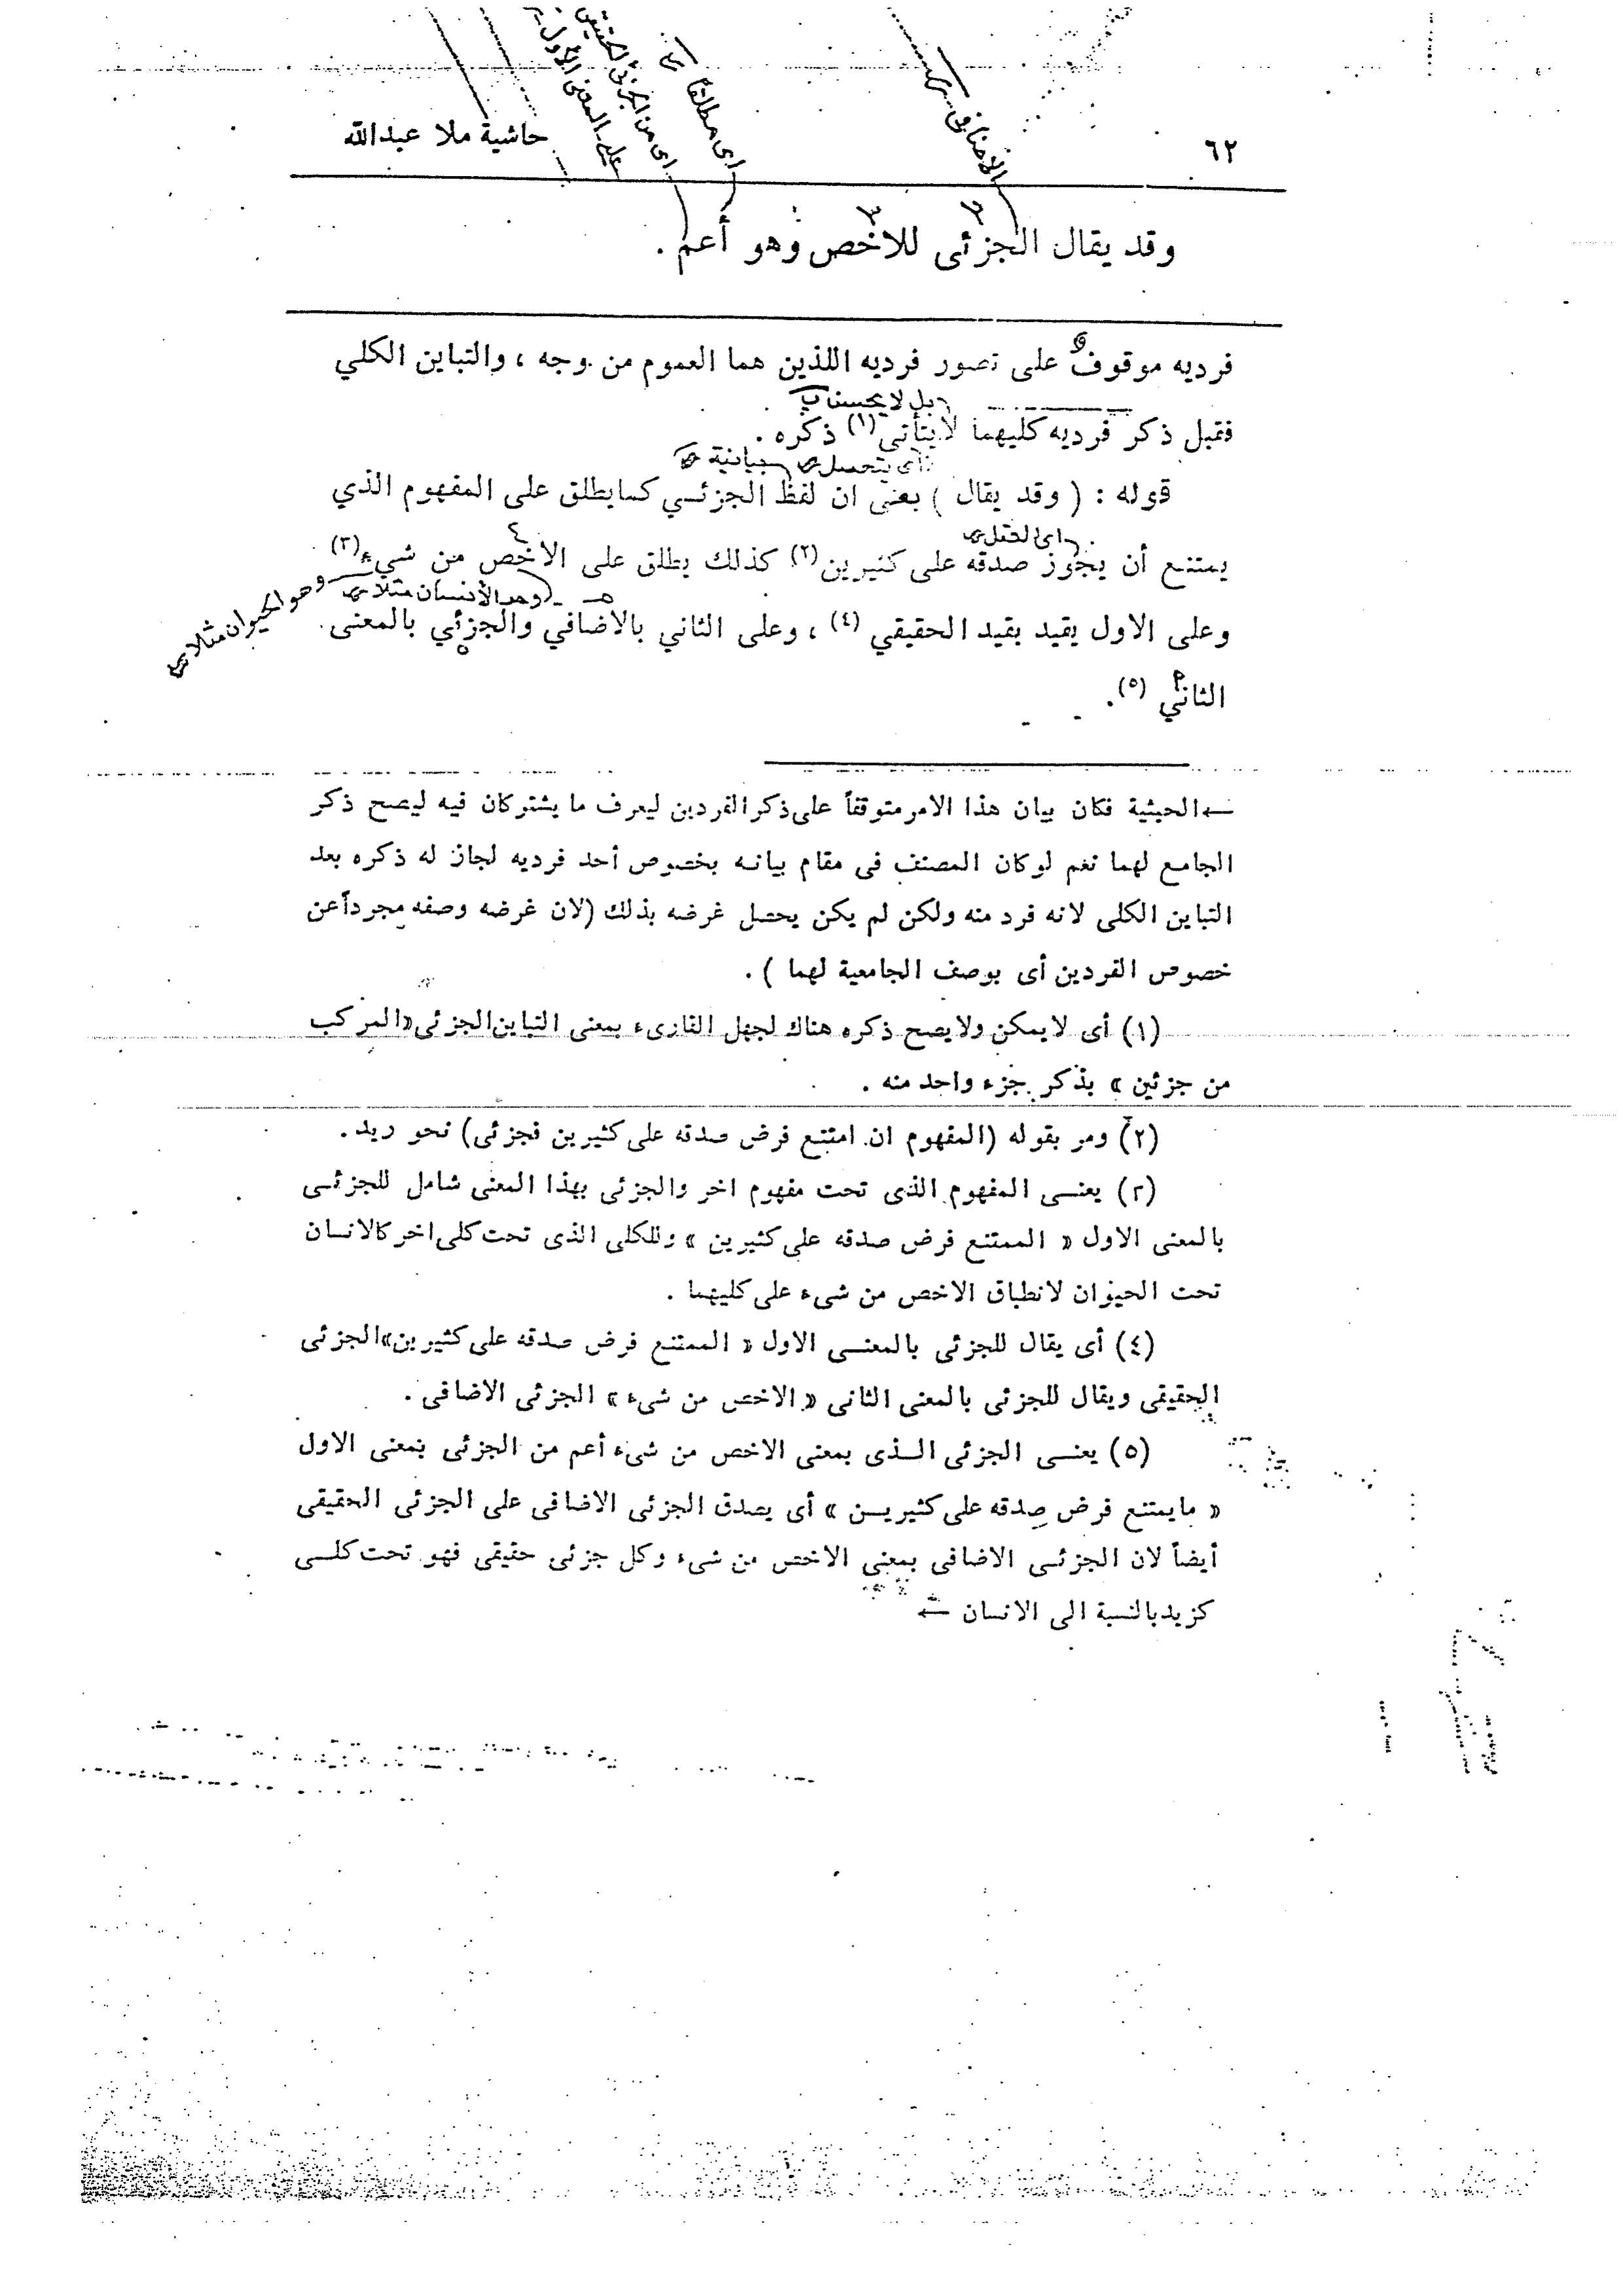 ٦٢
حاشية ملا عبدالله
الاضافى
اى مطلقا
اى من الجزئى الحقيقى
على المعنى الأول
وقد يقال الجزئى للاخص وهو أعم .
فرديه موقوف على تصور فرديه اللذين هما العموم من وجه ، والتباين الكلي
بل لا يحسن
فقبل ذكر فرديه كليهما لايتأتى (١) ذكره .
اى يتحصل
قوله : ( وقد يقال ) يعنى ان لفظ الجزئسي كمايطلق على المفهوم الذي
اى العقل
يمتنع أن يجوز صدقه على كثيرين (٢) كذلك يطلق على الاخص من شيء (٣)
وهو الأنسان مثلا
وهو الحيوان مثلا
وعلى الاول يقيد بقيد الحقيقي (٤) ، وعلى الثاني بالاضافي والجزئي بالمعنى
الثاني (٥) .
←الحيثية فكان بيان هذا الامر متوقفاً على ذكر الفردين ليعرف ما يشتركان فيه ليصح ذكر
الجامع لهما نعم لوكان المصنف فى مقام بيانه بخصوص أحد فرديه لجاز له ذكره بعد
التباين الكلى لانه فرد منه ولكن لم يكن يحصل غرضه بذلك (لان غرضه وصفه مجرداً عن
خصوص الفردين أى بوصف الجامعية لهما ) .
(١) أى لايمكن ولايصح ذكره هناك لجهل القارىء بمعنى التباين الجزئى «المركب
من جزئين » بذكر جزء واحد منه .
(٢) ومر بقوله (المفهوم ان امتنع فرض صدقه على كثيرين فجزئى) نحو زيد .
(٣) يعنسى المفهوم الذى تحت مفهوم اخر والجزئى بهذا المعنى شامل للجزئسى
بالمعنى الاول « الممتنع فرض صدقه على كثيرين » وللكلى الذى تحت كلى اخر كالانسان
تحت الحيوان لانطباق الاخص من شىء على كليهما .
(٤) أى يقال للجزئى بالمعنسى الاول « الممتنع فرض صدقه على كثيرين»الجزئى
الحقيقى ويقال للجزئى بالمعنى الثانى « الاخص من شىء » الجزئى الاضافى .
(٥) يعنسى الجزئى السذى بمعنى الاخص من شىء أعم من الجزئى بمعنى الاول
« مايمتنع فرض صدقه على كثيريسن » أى يصدق الجزئى الاضافى على الجزئى الحقيقى
أيضاً لان الجزئسى الاضافى بمعنى الاخص من شىء وكل جزئى حقيقى فهو تحت كلسى
كزيد بالنسبة الى الانسان ←